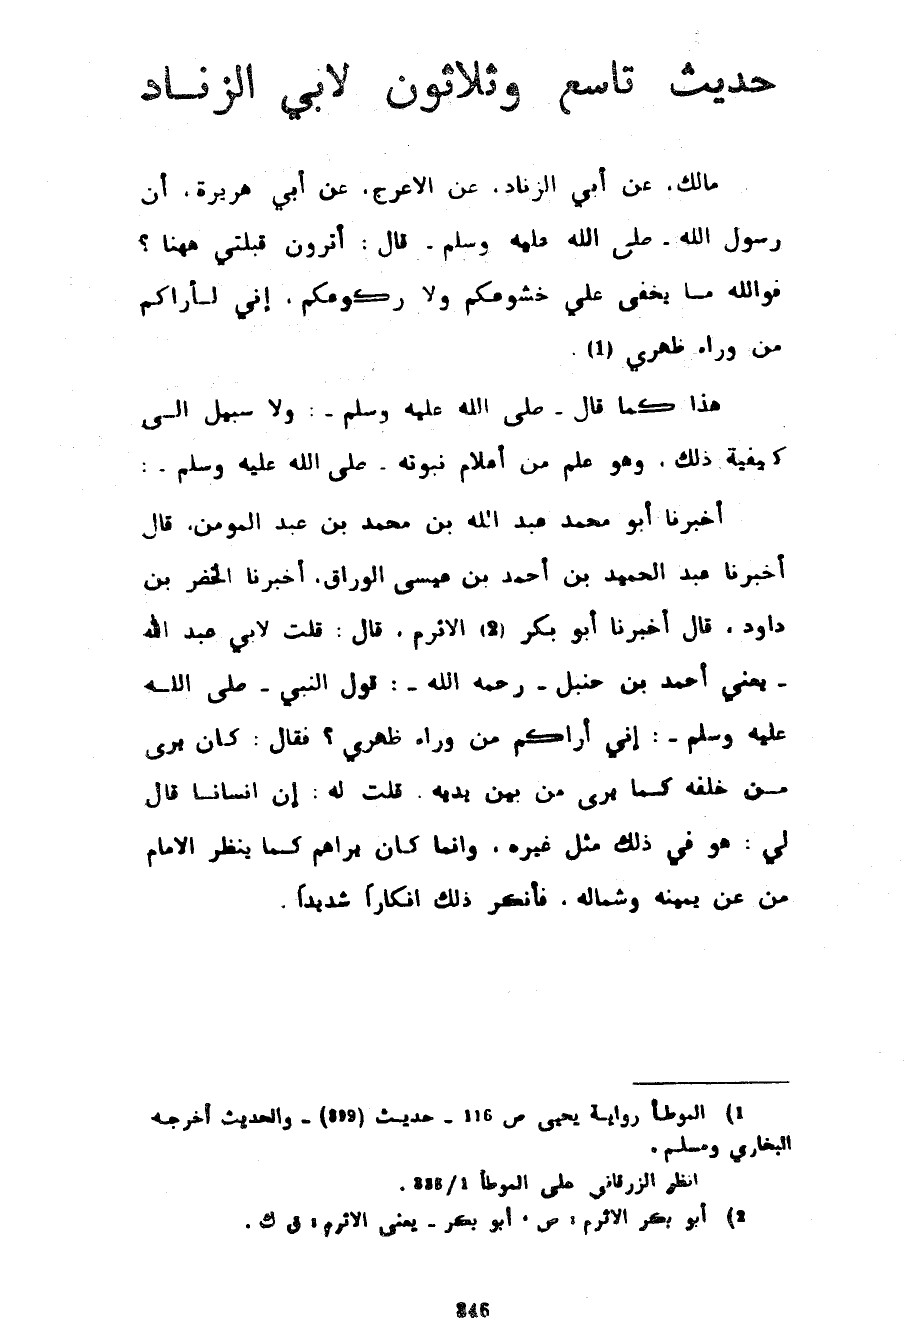 حديث تاسع وثلاثون لابي الزنـاد
مالك، عن أبي الزناد، عن الاعرج، عن أبي هريرة، أن
رسول الله ـ صلى الله عليه وسلم ـ قال : أترون قبلتي ههنا ؟
فوالله مـا يخفى علي خشوعكم ولا ركوعكم ، إني لـأراكم
من وراء ظهري (1) .
هذا كما قال ـ صلى الله عليه وسلم ـ : ولا سبيل الـى
كيفية ذلك ، وهو علم من أعلام نبوته ـ صلى الله عليه وسلم ـ :
أخبرنا أبو محمد عبد الله بن محمد بن عبد المومن، قال
أخبرنا عبد الحميد بن أحمد بن عيسى الوراق، أخبرنا الخضر بن
داود ، قال أخبرنا أبو بكر (2) الاثرم ، قال : قلت لابي عبد الله
ـ يعني أحمد بن حنبل ـ رحمه الله ـ : قول النبي ـ صلى اللـه
عليه وسلم ـ : إني أراكم من وراء ظهري ؟ فقال : كان يرى
مـن خلفه كـما يرى من بين يديه . قلت له : إن انسانـا قال
لي : هو في ذلك مثل غيره ، وانما كـان يراهم كـما ينظر الامام
من عن يمينه وشماله ، فأنكر ذلك انكاراً شديداً .
1) الموطـأ روايـة يحيى ص 116 ـ حديـث (399) ـ والحديث أخرجـه
البخاري ومسلـم .
انظر الزرقاني على الموطأ 1/
2) أبو بكر الاثرم : ص . أبو بكر ـ يعنى الاثرم : ق ك .
346